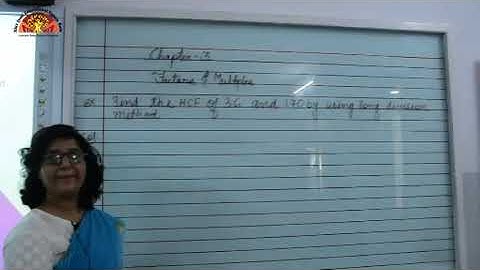 Chapter-3
Factors & Multiples
Ex Find the HCF of 36 and 170 by using long division
method.
Sol